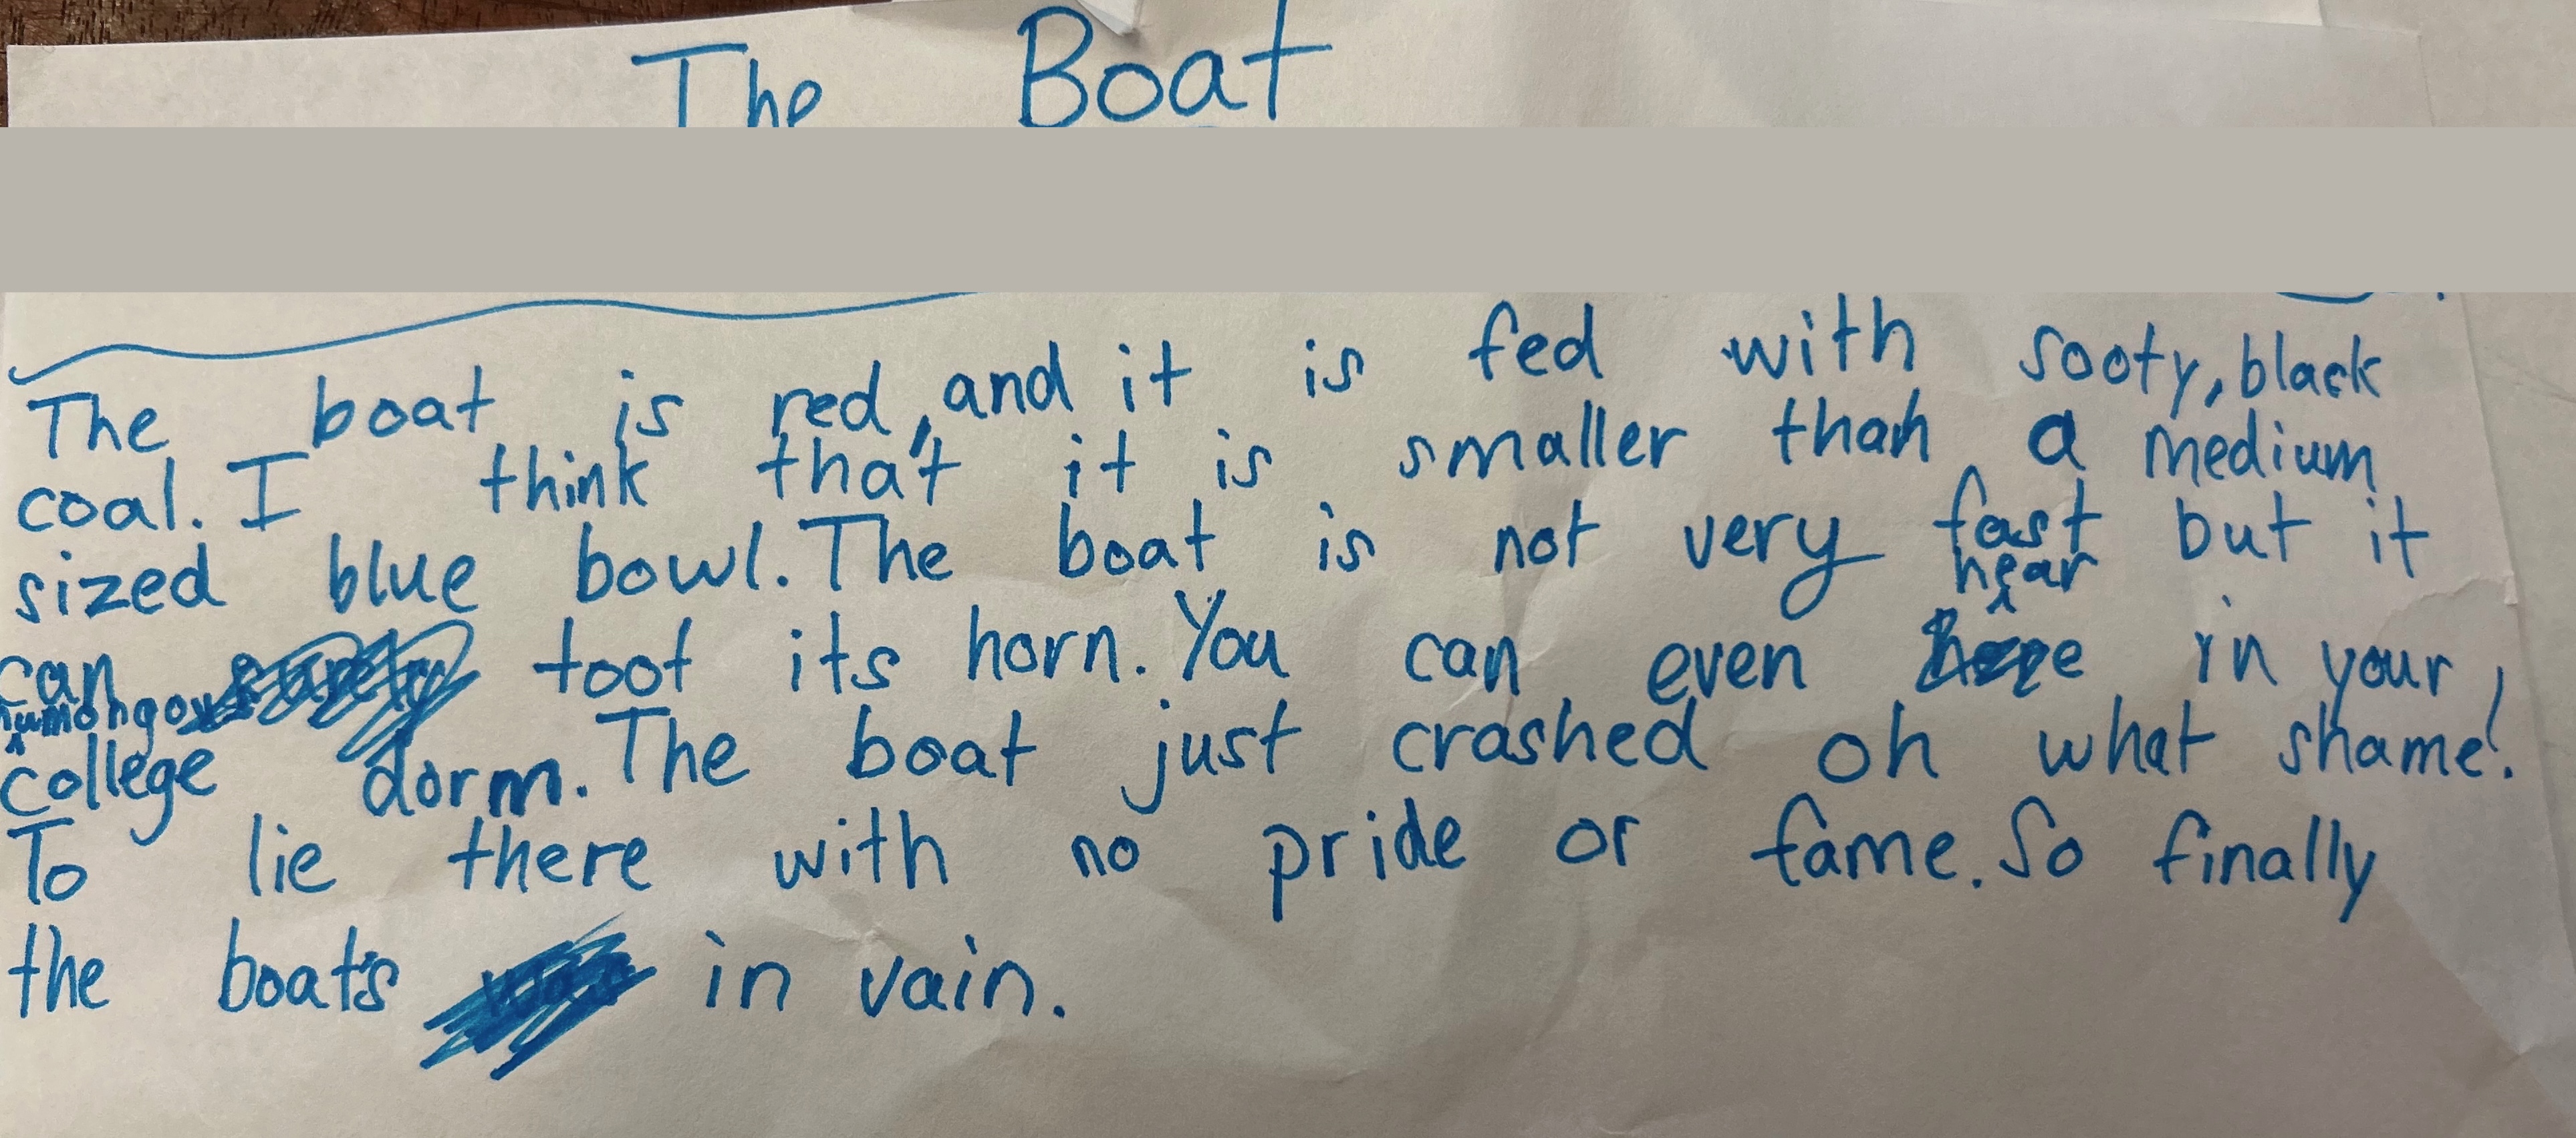 The Boat
The boat is red, and it is fed with sooty, black
coal. I think that it is smaller than a medium
sized blue bowl. The boat is not very fast but it
hear
can toot its horn. You can even in your
humongous
college dorm. The boat just crashed oh what shame!
To lie there with no pride or fame. So finally
the boat's in vain.